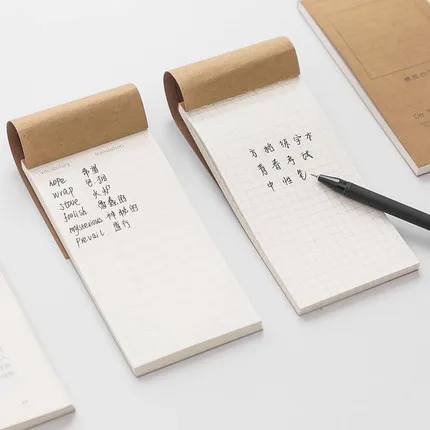 vocabulary translation
wrap 包
stove 火炉
foolish 愚蠢的
mysterious 神秘的
prevail 盛行
方格练字本
考试
中性笔